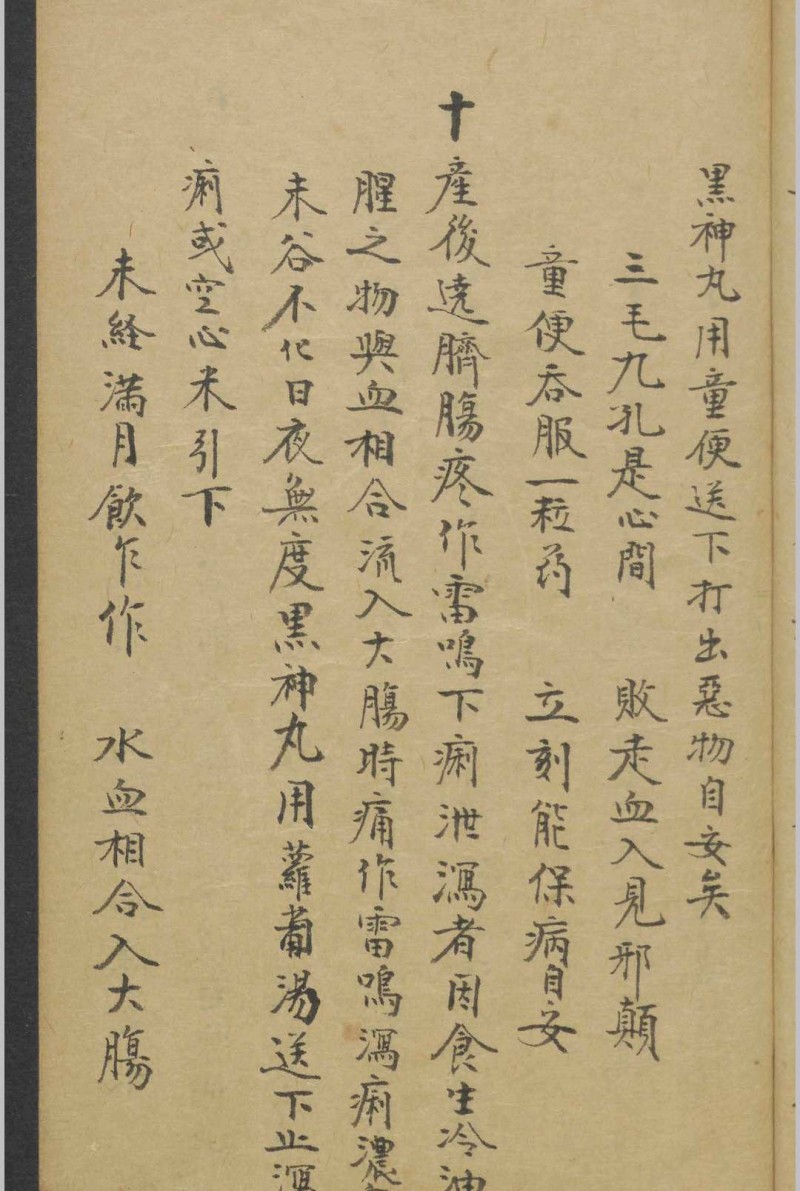 黒神丸用童便送下打出惡物自安矣
三毛九孔是心間　敗走血入見邪顛
童便吞服一粒药　立刻能保病自安
十產後遶臍腸疼作雷鳴下痢泄瀉者因食生冷油
腥之物與血相合流入大腸時痛作雷鳴瀉痢濃
未谷不化日夜無度黒神丸用蘿蔔湯送下止瀉
痢或空心米引下
未経滿月飲乍作　水血相合入大腸